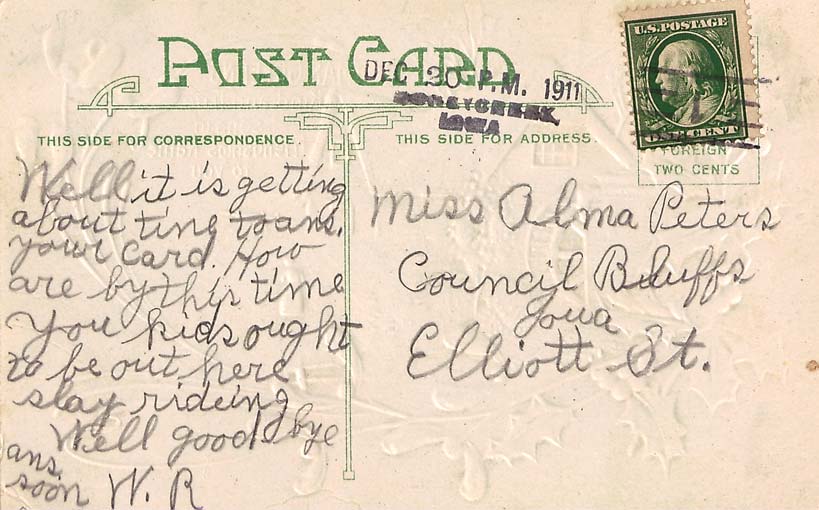 POST CARD
DEC 30 P.M. 1911
HONEY CREEK,
IOWA
U.S. POSTAGE
ONE CENT
THIS SIDE FOR CORRESPONDENCE.
THIS SIDE FOR ADDRESS.
FOREIGN
TWO CENTS
Well it is getting
about tine to ans.
your card. How
are by this time
You kids ought
to be out here
slay rideing
Well good bye
ans.
soon W. R
Miss Alma Peters
Council Bluffs
Iowa
Elliott St.